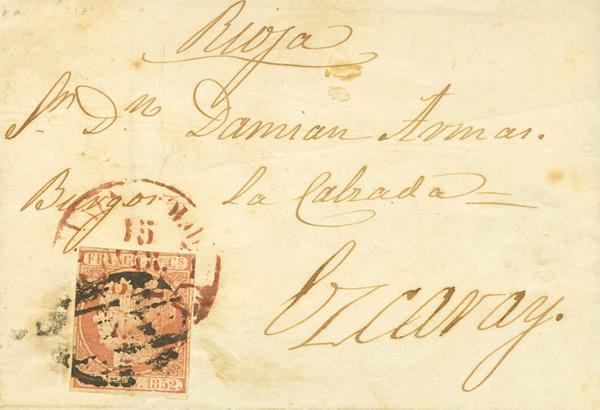 Rioja
Sr. Dn. Damian Armas.
Burgos la Calzada
15
FRANCO CS
1852.
Ezcaray.